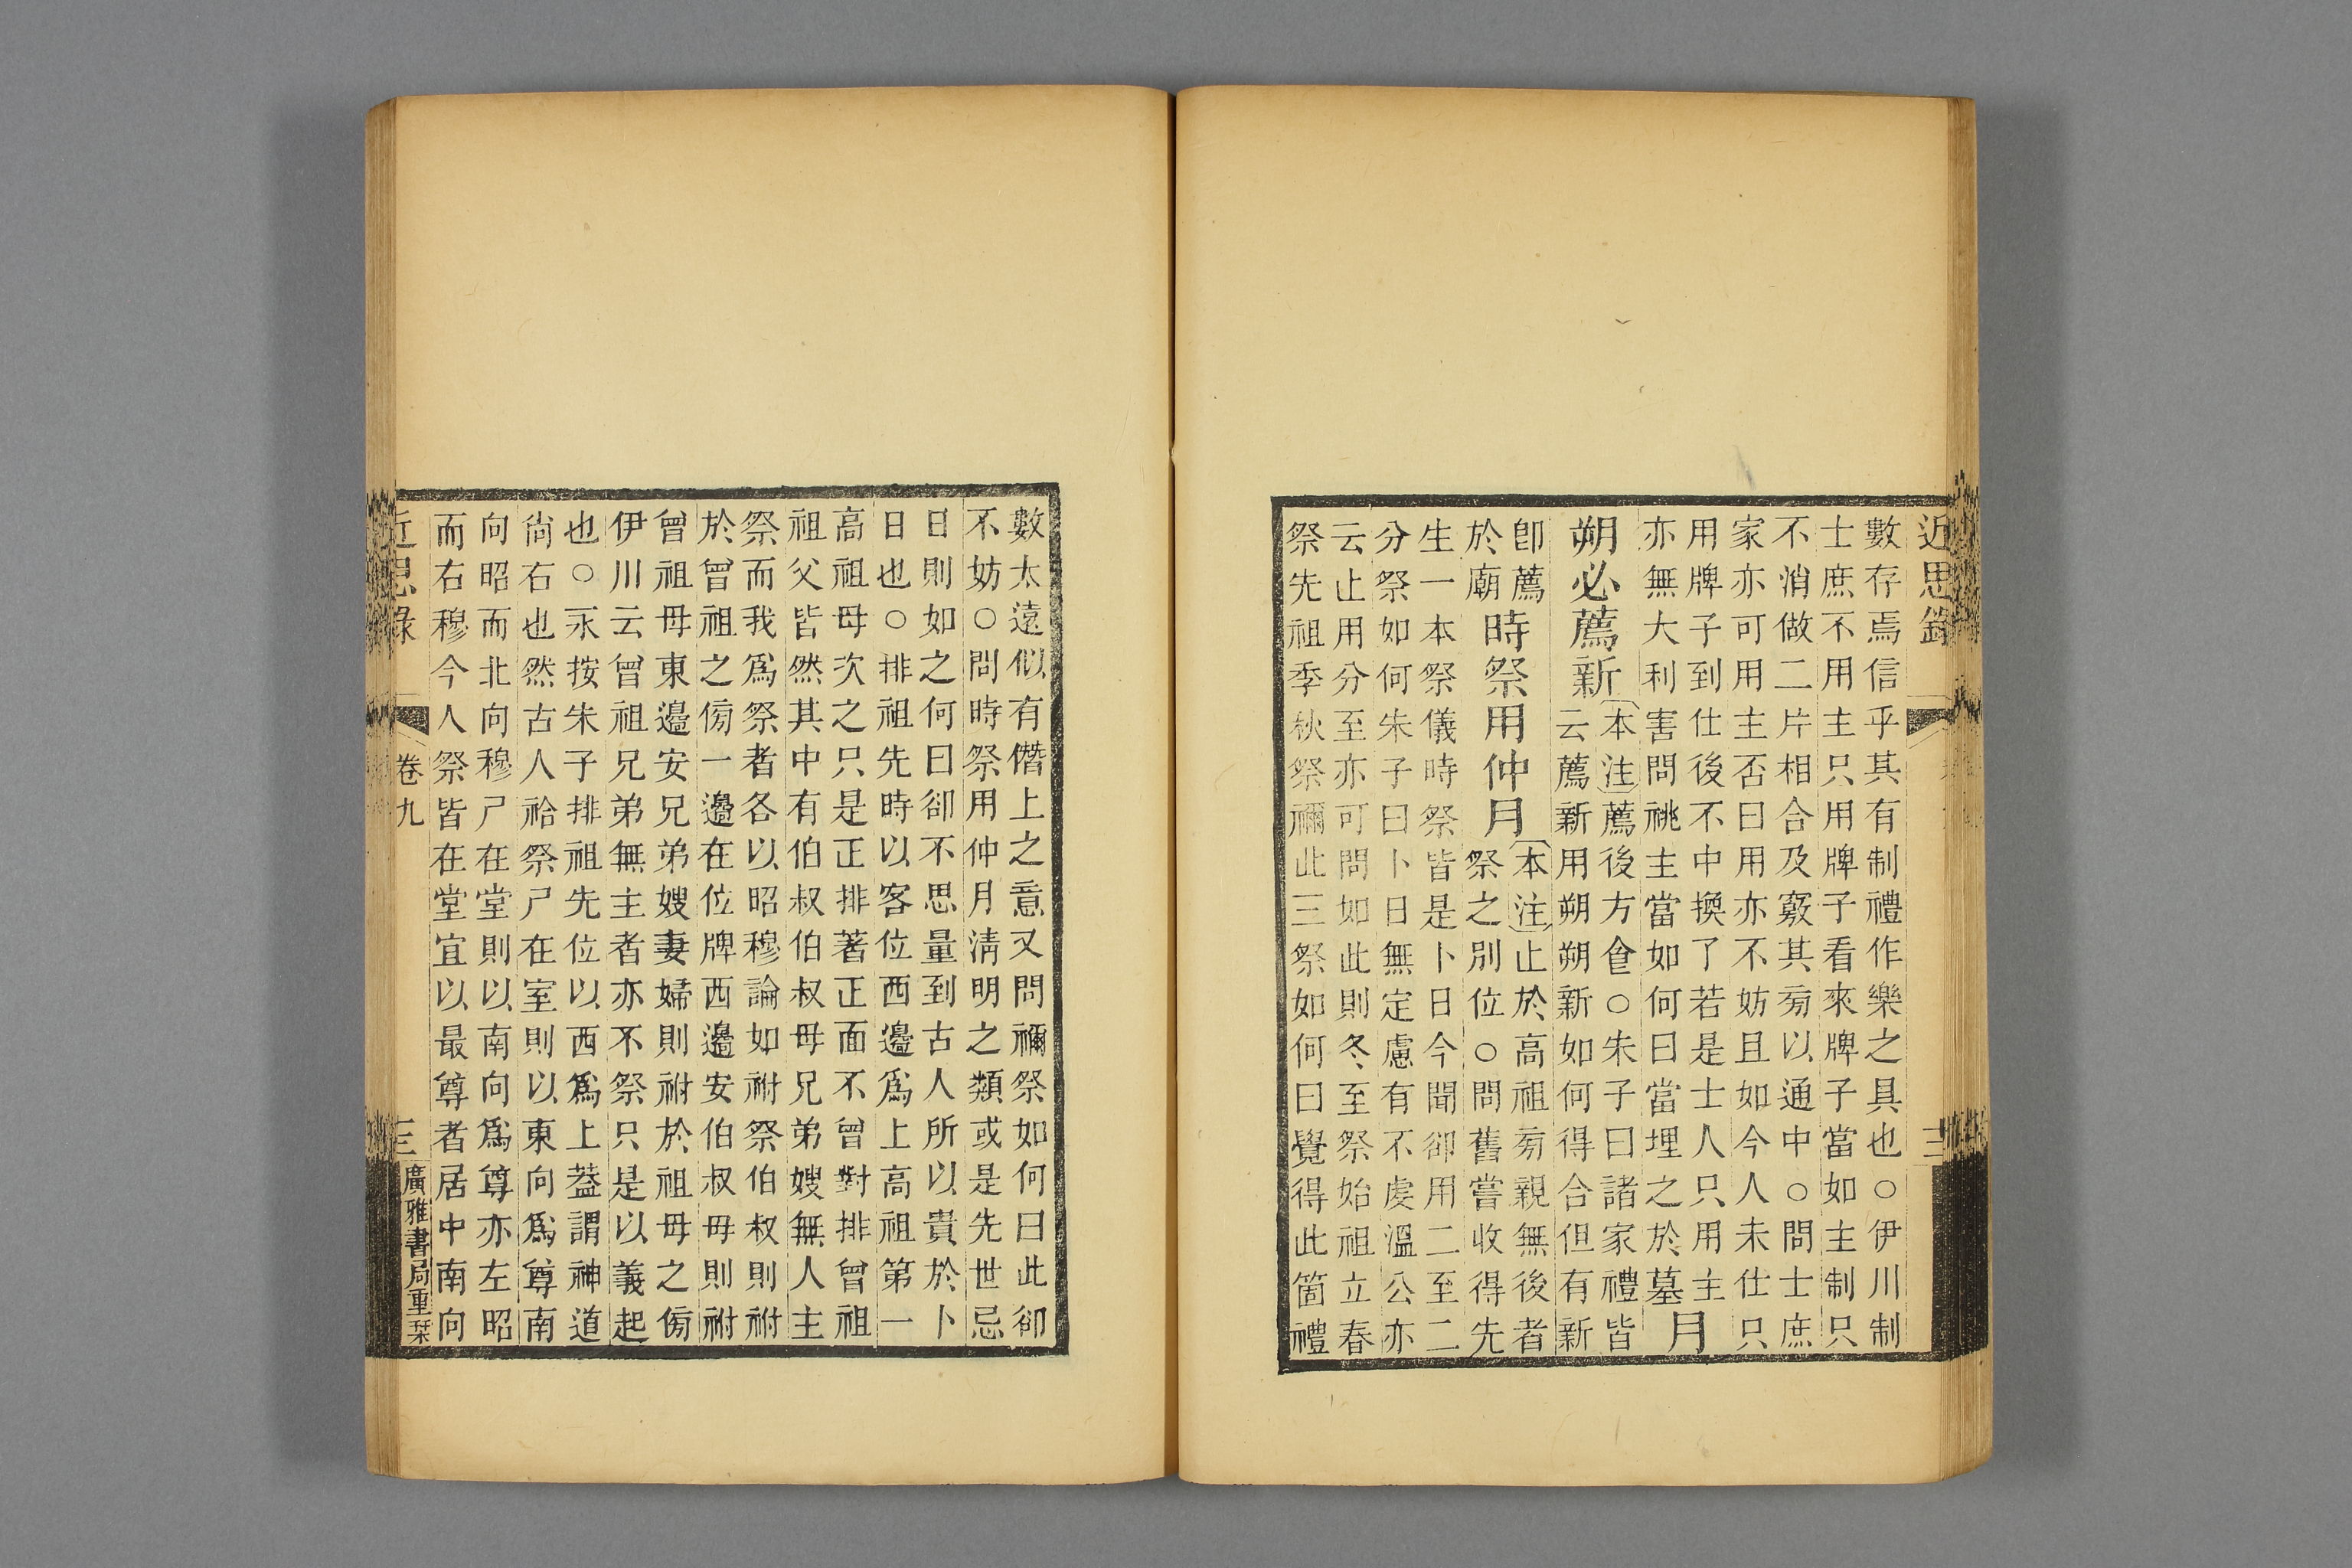 近思錄
三
數存焉信乎其有制禮作樂之具也○伊川制
士庶不用主只用牌子看來牌子當如主制只
不消做二片相合及竅其旁以通中○問士庶
家亦可用主否曰用亦不妨且如今人未仕只
用牌子到仕後不中換了若是士人只用主
亦無大利害問祧主當如何曰當埋之於墓
月
朔必薦新
本注薦後方食○朱子曰諸家禮皆
云薦新用朔朔新如何得合但有新
卽薦
於廟
時祭用仲月
本注止於高祖旁親無後者
祭之別位○問舊嘗收得先
生一本祭儀時祭皆是卜日今聞卻用二至二
分祭如何朱子曰卜日無定慮有不虔溫公亦
云止用分至亦可問如此則冬至祭始祖立春
祭先祖季秋祭禰此三祭如何曰覺得此箇禮
數太遠似有僭上之意又問禰祭如何曰此卻
不妨○問時祭用仲月淸明之類或是先世忌
日則如之何曰卻不思量到古人所以貴於卜
日也○排祖先時以客位西邊爲上高祖第一
高祖母次之只是正排著正面不曾對排曾祖
祖父皆然其中有伯叔伯叔母兄弟嫂無人主
祭而我爲祭者各以昭穆論如祔祭伯叔則祔
於曾祖之傍一邊在位牌西邊安伯叔母則祔
曾祖母東邊安兄弟嫂妻婦則祔於祖母之傍
伊川云曾祖兄弟無主者亦不祭只是以義起
也○永按朱子排祖先位以西爲上蓋謂神道
尙右也然古人祫祭尸在室則以東向爲尊南
向昭而北向穆尸在堂則以南向爲尊亦左昭
而右穆今人祭皆在堂宜以最尊者居中南向
近思錄
卷九
三
廣雅書局重栞